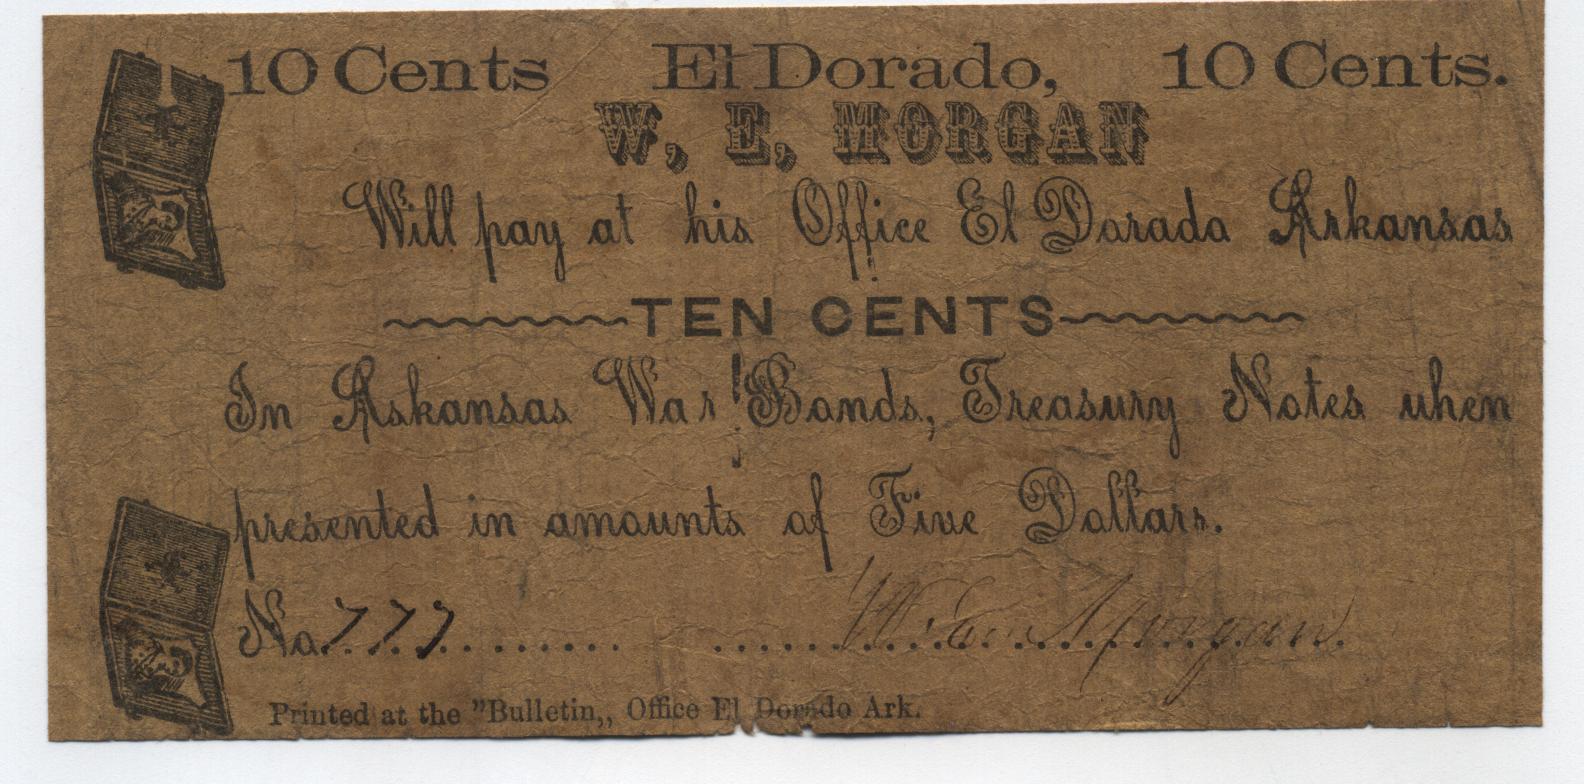 10 Cents El Dorado, 10 Cents.
W, E, MORGAN
Will pay at his Office El Dorado Arkansas
TEN CENTS
In Arkansas War Bonds, Treasury Notes when
presented in amounts of Five Dollars.
No. 777 W. E. Morgan
Printed at the "Bulletin,, Office El Dorado Ark.